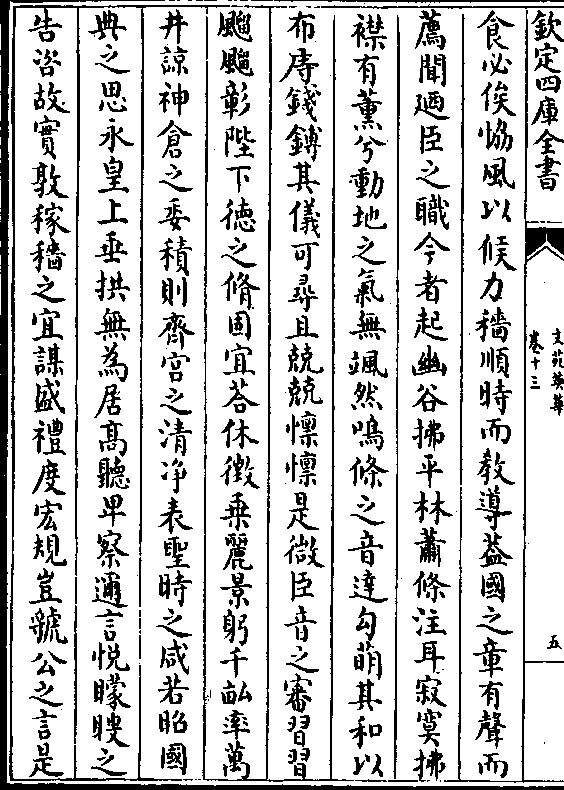 欽定四庫全書
文苑英華
卷十三
五
食必俟協風以候力穡順時而教導葢國之章有聲而
薦聞廼臣之職今者起幽谷拂平林蕭條注耳寂寞拂
襟有薫兮動地之氣無颯然鳴條之音達勾萌其和以
布庤錢鎛其儀可尋且兢兢懔懔是微臣音之審習習
颸颸彰陛下徳之脩固宜荅休徴乗麗景躬千畝率萬
井諒神倉之委積則齊宫之清净表聖時之咸若昭國
典之思永皇上垂拱無為居髙聽卑察邇言悦矇瞍之
告咨故實敦稼穡之宜謀盛禮度宏規豈虢公之言是